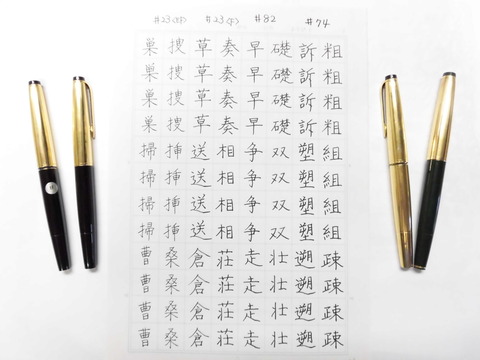 #23(EF) #23(F) #82 #74
粗粗粗粗組組組組疎疎疎疎
訴訴訴訴塑塑塑塑遡遡遡遡
礎礎礎礎双双双双壮壮壮壮
早早早早争争争争走走走走
奏奏奏奏相相相相荘荘荘荘
草草草草送送送送倉倉倉倉
捜捜捜捜挿挿挿挿桑桑桑桑
巣巣巣巣掃掃掃掃曹曹曹曹